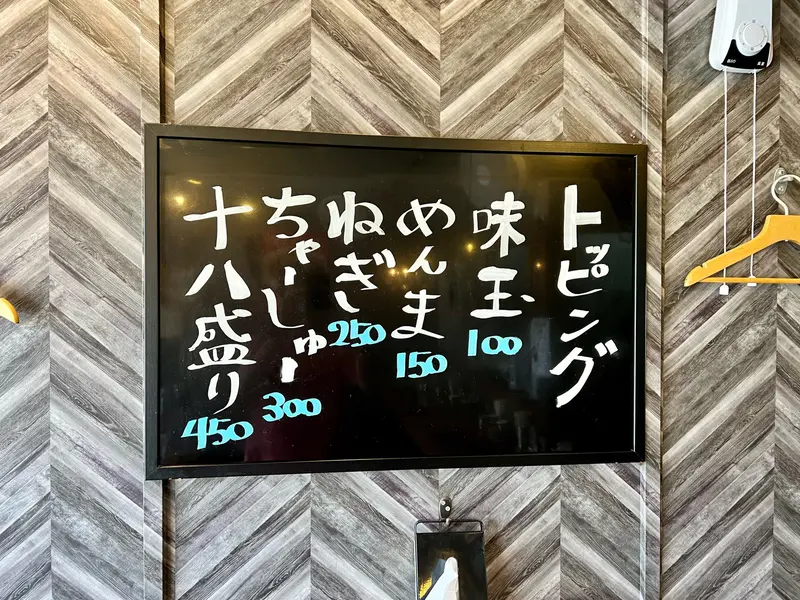 トッピング
味玉 100
めんま 150
ねぎ 250
ちゃーしゅー 300
十八盛り 450